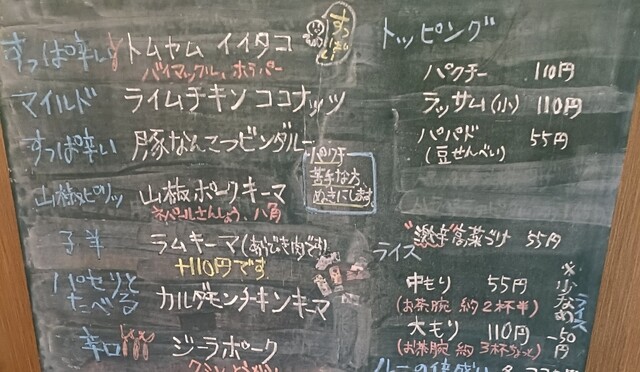 すっぱ辛い トムヤム イイタコ
バイマックル、ホーラパー
マイルド ライムチキンココナッツ
すっぱ辛い 豚なんこつビンダルー
パクチー
苦手な方
ぬきにします
山椒ピリッ 山椒ポークキーマ
ネパールさんしょう、八角
子羊 ラムキーマ(あらびき肉です)
+110円です
パセリと
たべる カルダモンチキンキーマ
辛口 ジーラポーク
トッピング
パクチー 110円
ラッサム(小) 110円
パパド 55円
(豆せんべい)
"激辛"高菜づけ 55円
ライス
中もり 55円
(お茶腕 約2杯半)
大もり 110円
(お茶腕 約3杯ちょっと)
※少なめライス
-50円